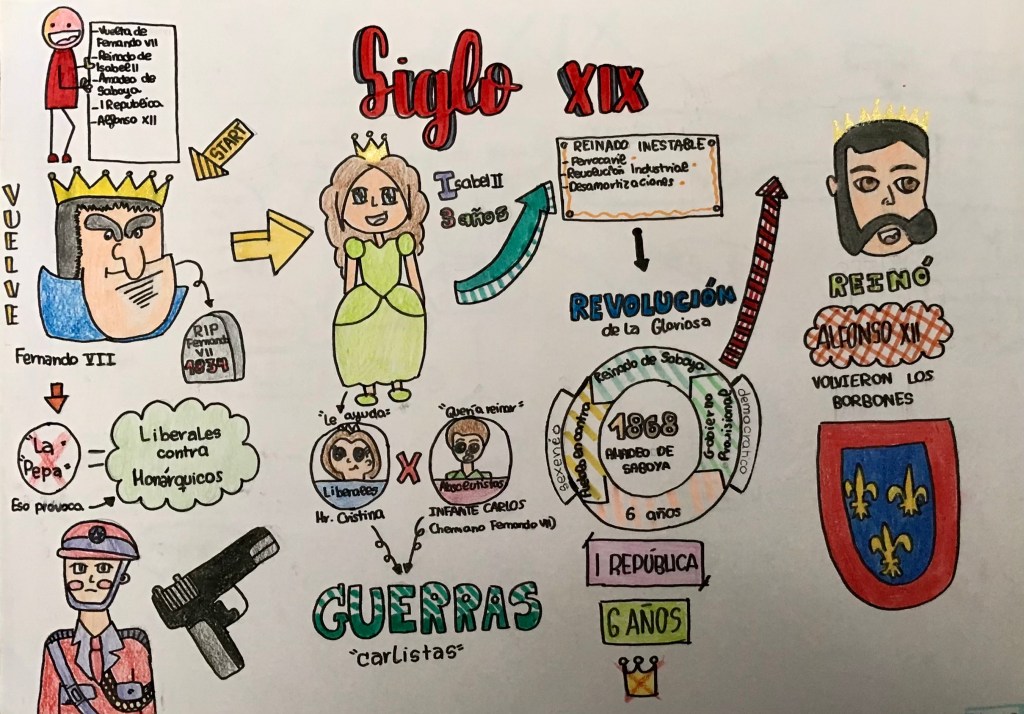 Siglo XIX
- Vuelta de
Fernando VII
- Reinado de
Isabel II
- Amadeo de
Saboya
- I Republica
- Alfonso XII
START
VUELVE
Fernando VII
RIP
Fernando
VII
1834
"La
Pepa"
Eso provoca
Liberales
contra
Monárquicos
Isabel II
3 años
"Le ayuda"
Liberales
Mº. Cristina
X
"Quería reinar"
Absolutistas
INFANTE CARLOS
(hermano Fernando VII)
GUERRAS
"carlistas"
REINADO INESTABLE
- Ferrocaril
- Revolución Industrial
- Desamortizaciones
REVOLUCIÓN
de la Gloriosa
Reinado de Saboya
Gobierno Provisional
6 años
Pueblo en contra
sexenio
democrático
1868
AMADEO DE
SABOYA
I REPÚBLICA
6 AÑOS
REINÓ
ALFONSO XII
VOLVIERON LOS
BORBONES